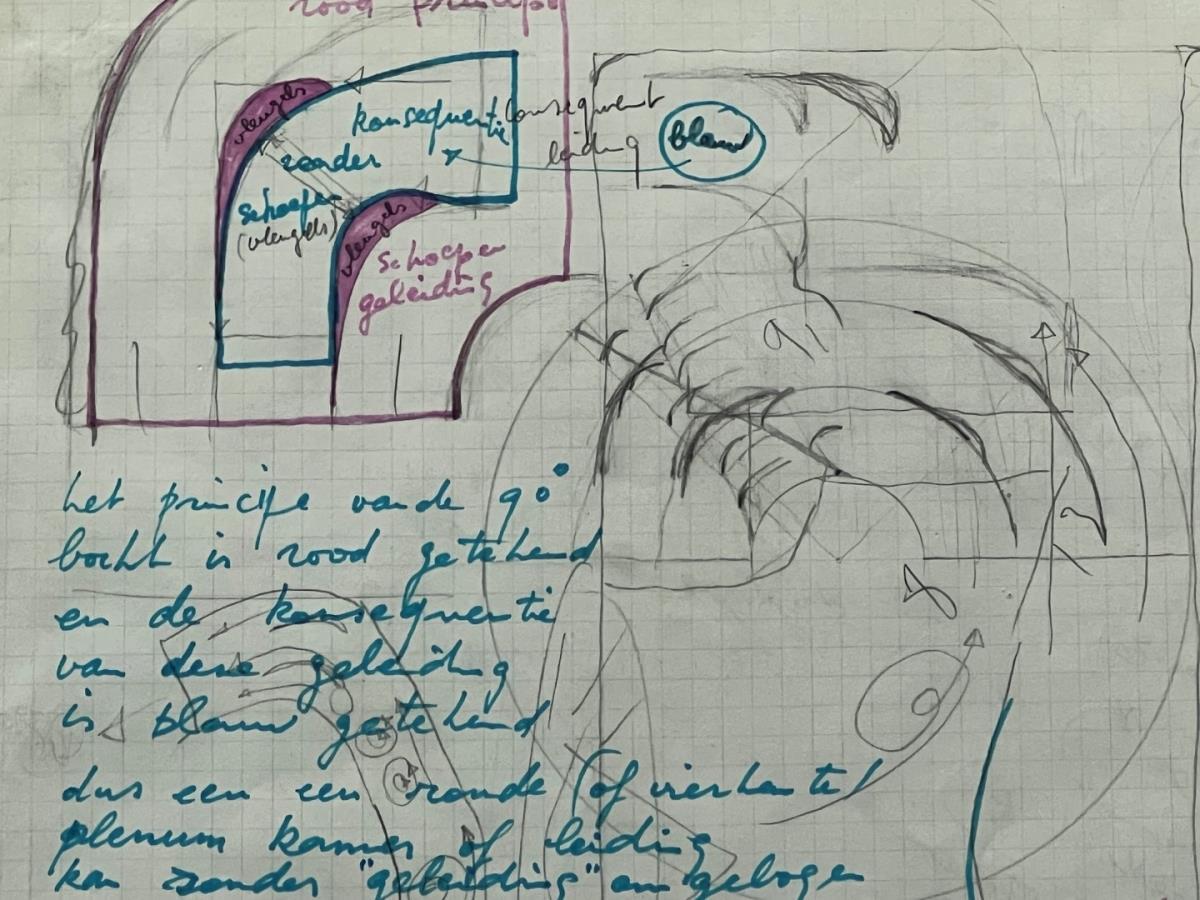 rood principe
vleugels
konsequentie
zonder
schoepen
(vleugels)
konsequent
leiding
blauw
vleugels
schoepen
geleiding
het principe van de 90°
bocht is rood getekend
en de konsequentie
van deze geleiding
is blauw getekend
dus een een ronde (of vierkante)
plenum kamer of leiding
kan zonder "geleiding" omgebogen